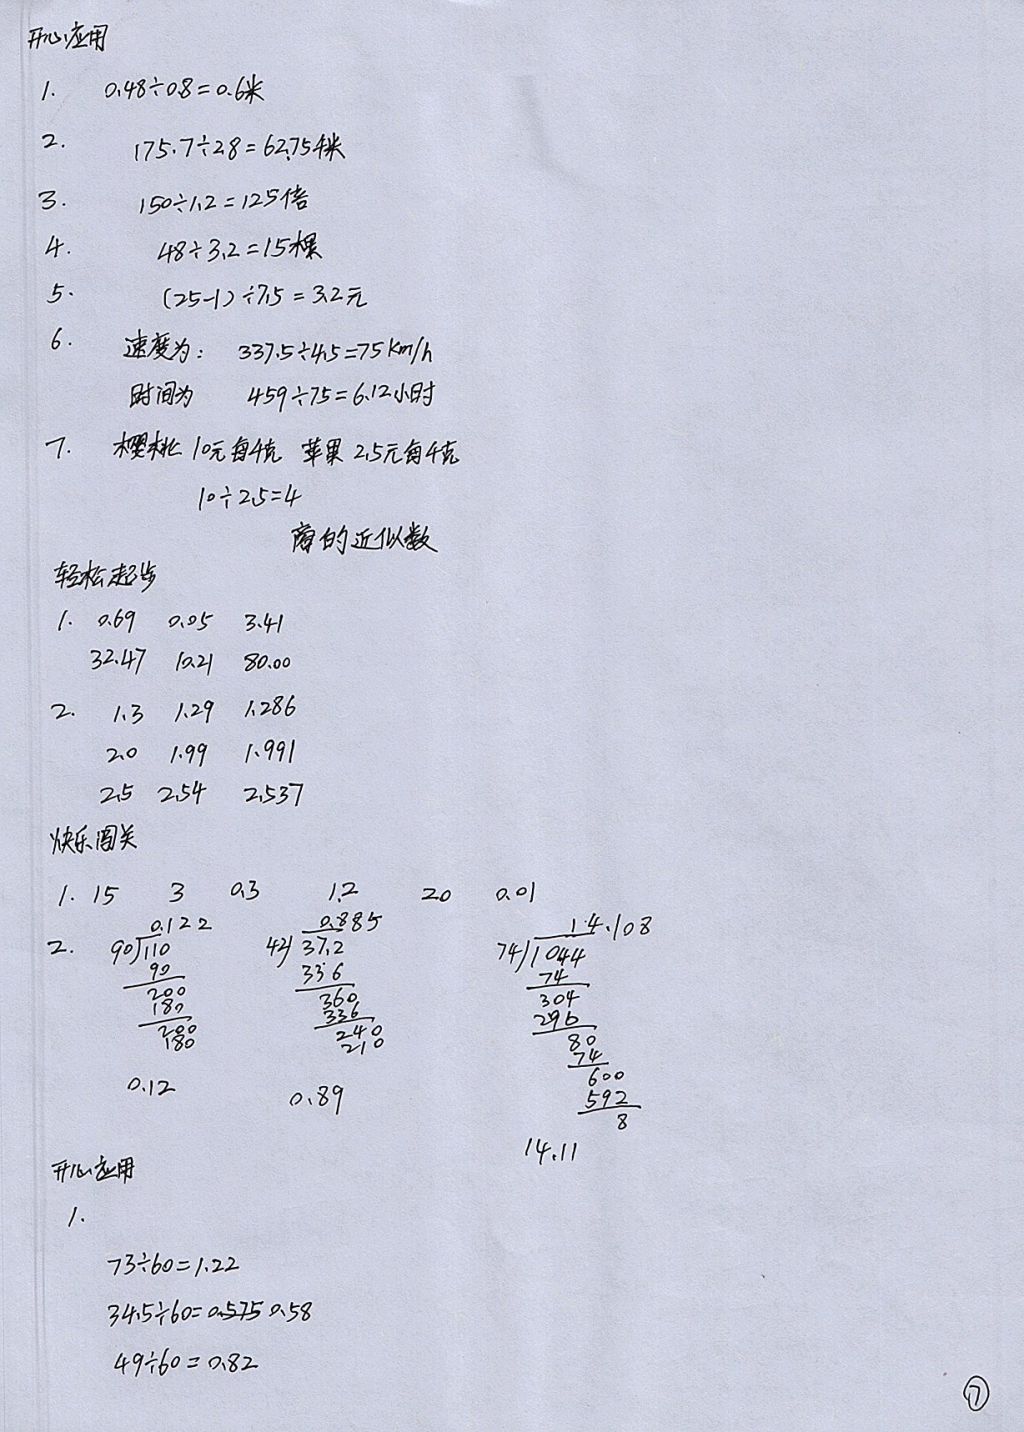 开心应用
1. 0.48÷0.8=0.6米
2. 175.7÷2.8=62.75千米
3. 150÷1.2=125倍
4. 48÷3.2=15棵
5. (25-1)÷7.5=3.2元
6. 速度为: 337.5÷4.5=75km/h
时间为 459÷75=6.12小时
7. 樱桃 10元每千克 苹果 2.5元每千克
10÷2.5=4
商的近似数
轻松起步
1. 0.69 0.05 3.41
32.47 10.21 80.00
2. 1.3 1.29 1.286
2.0 1.99 1.991
2.5 2.54 2.537
快乐闯关
1. 15 3 0.3 1.2 20 0.01
0.122 0.885 14.108
2. 90)110 42)37.2 74)1044
90 336 74
200 360 304
180 336 296
200 240 80
180 210 74
600
592
8
0.12 0.89
14.11
开心应用
1.
73÷60=1.22
34.5÷60=0.575 0.58
49÷60=0.82
7